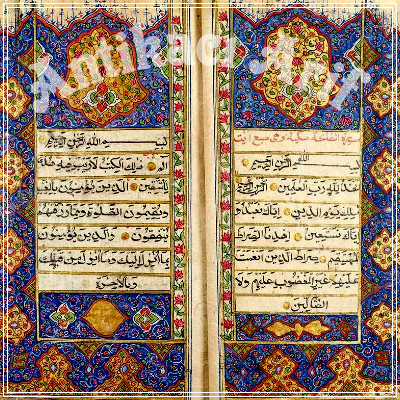 Antikacı
سورة الفاتحة مكية وهي سبع ايت
بسم الله الرحمن الرحيم
الحمد لله رب العلمين الرحمن الرحيم
ملك يوم الدين اياك نعبد و
اياك نستعين اهدنا الصراط
المستقيم صراط الذين انعمت
عليهم غير المغضوب عليهم ولا
الضالين
بسم الله الرحمن الرحيم
الم ذلك الكتب لا ريب فيه هدى
للمتقين الذين يؤمنون بالغيب
ويقيمون الصلوة ومما رزقنهم
ينفقون والذين يؤمنون
بما انزل اليك وما انزل من قبلك
وبالاخرة